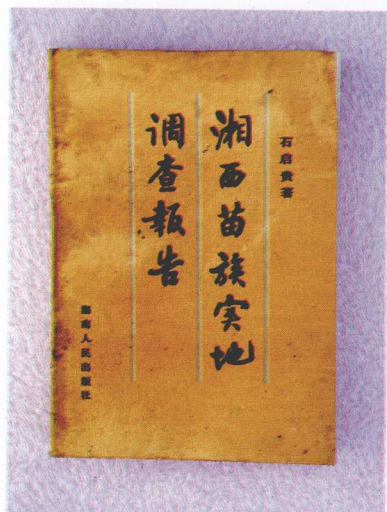 石启贵著
湘西苗族实地
调查报告
湖南人民出版社